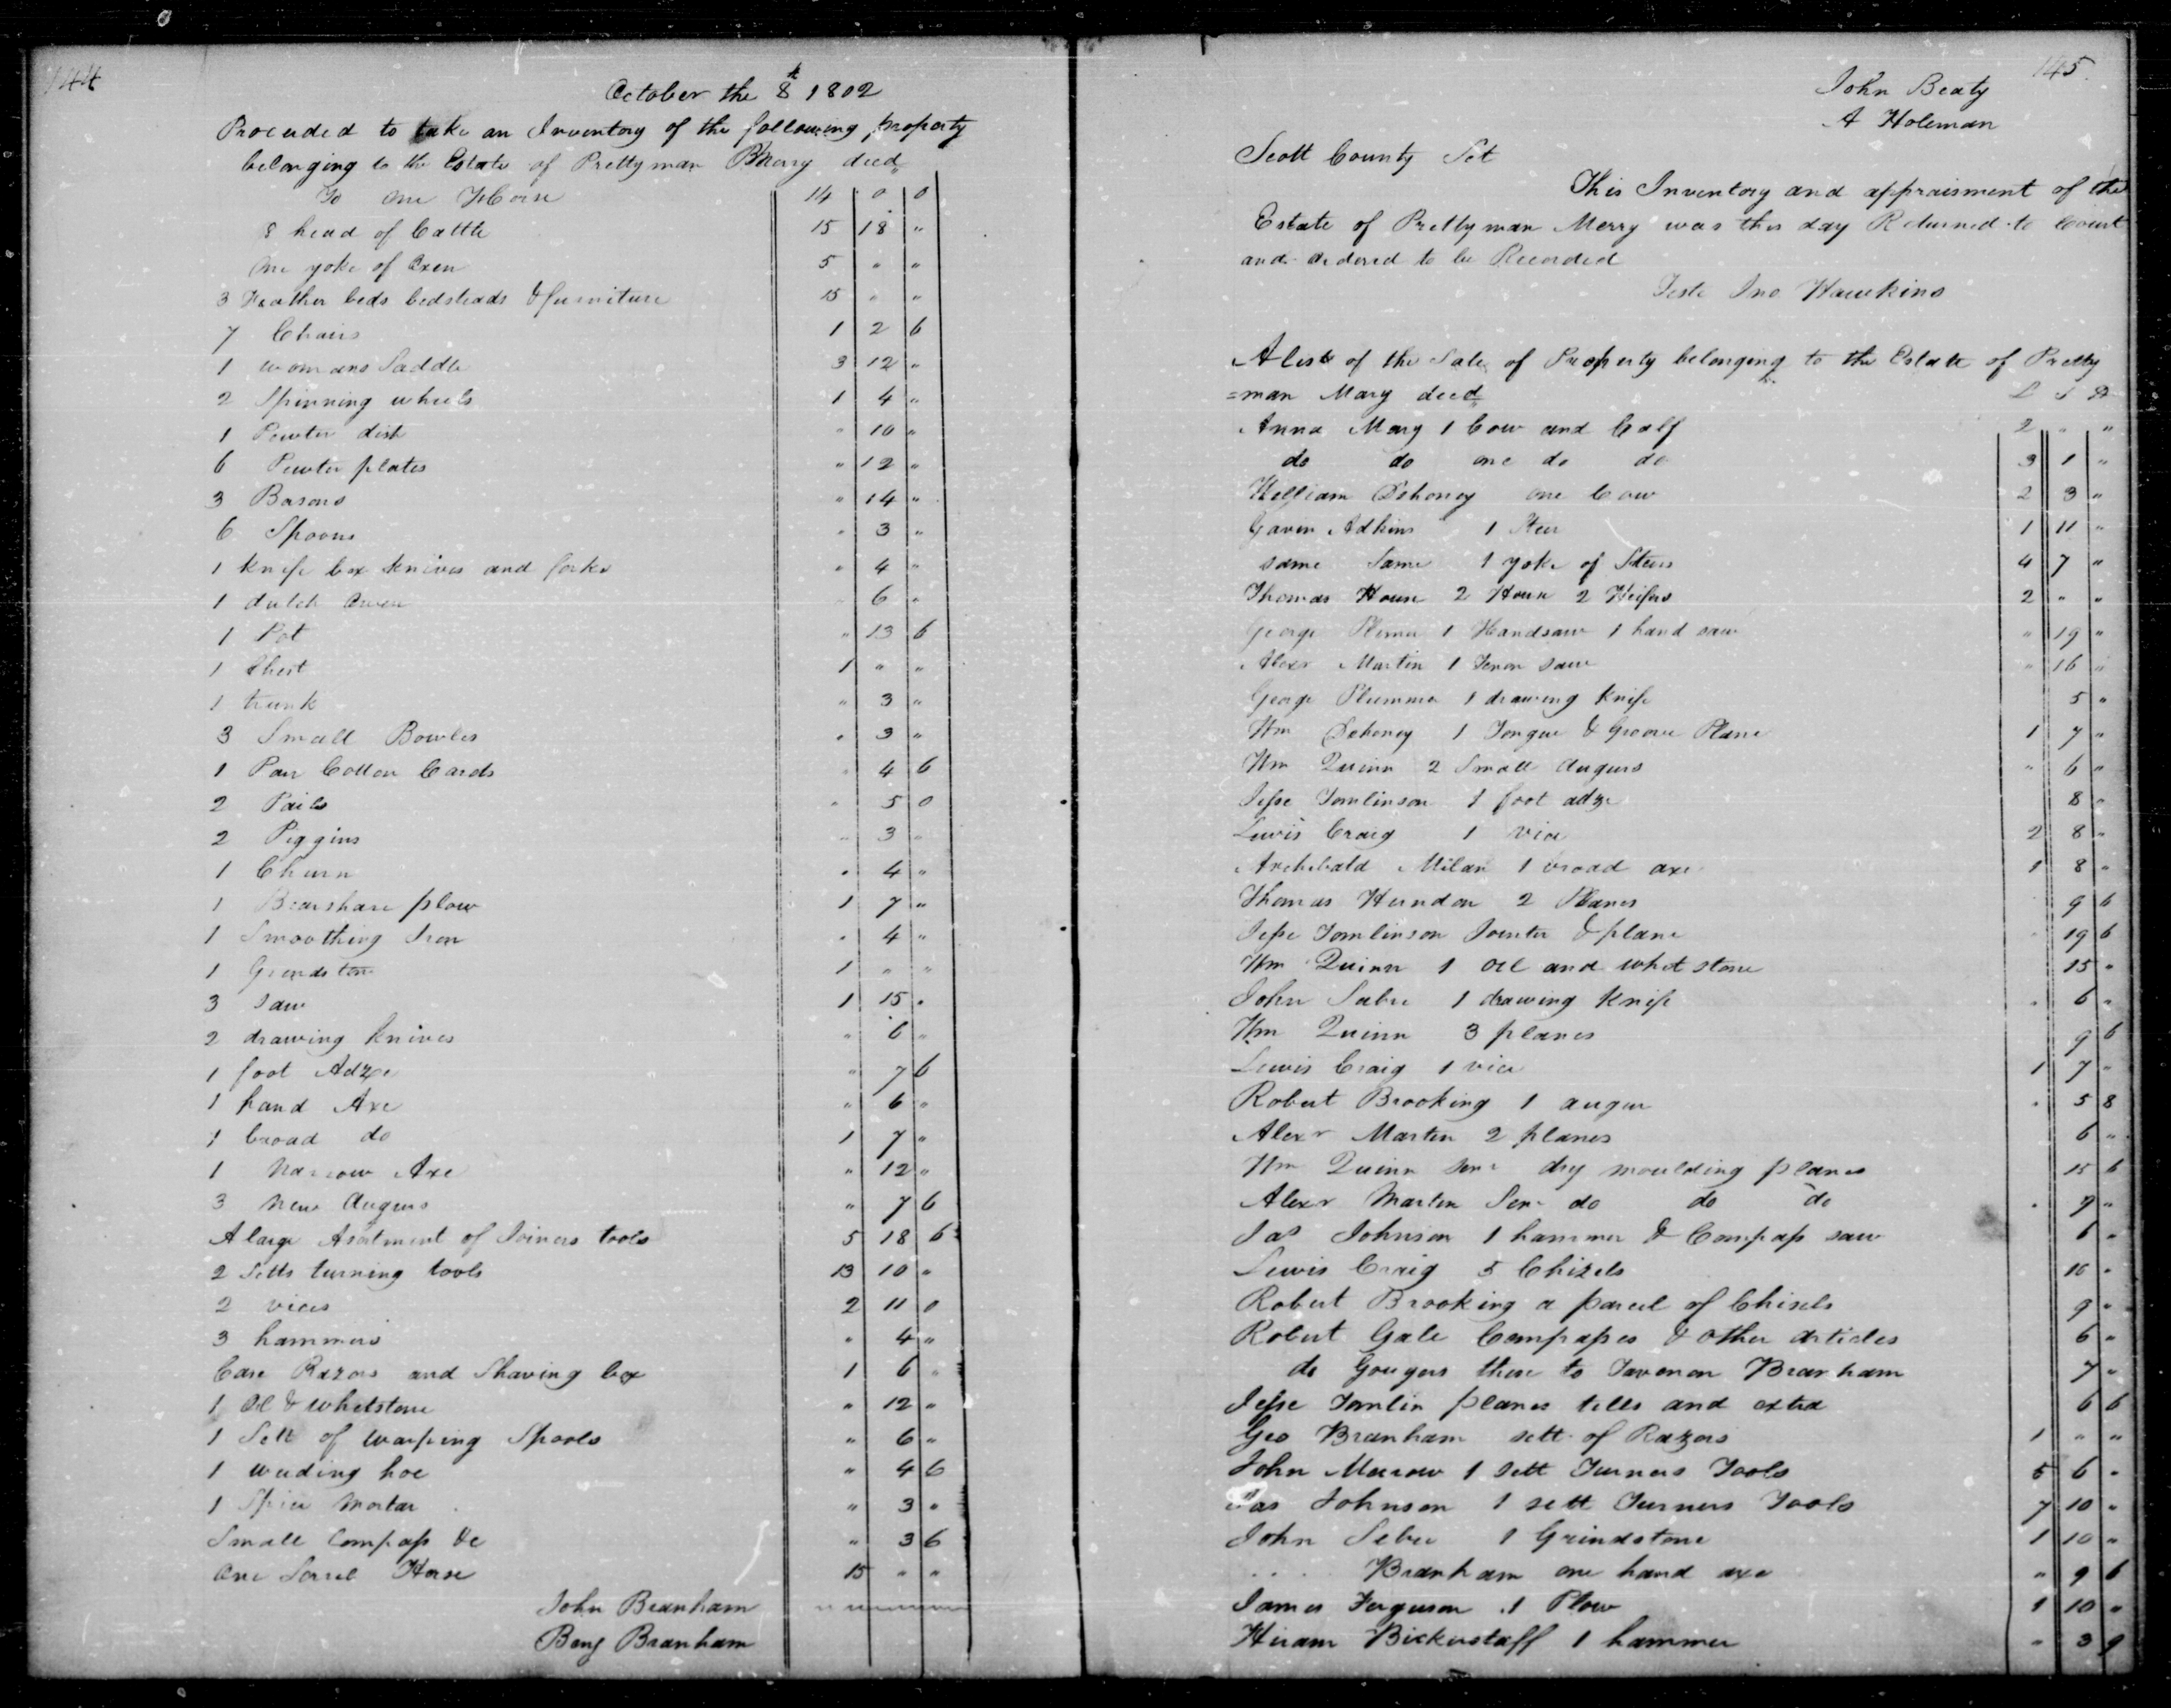 144
October the 8th 1802
Proceeded to take an Inventory of the following property
belonging to the Estate of Prettyman Merry decd
To one Horse 14 0 0
8 head of Cattle 15 18 "
One yoke of Oxen 5 " "
3 Feather beds bedsteads & furniture 15 " "
7 Chairs 1 2 6
1 womans Saddle 3 12 "
2 Spinning wheels 1 4 "
1 Pewter dish " 10 "
6 Pewter plates " 12 "
3 Basons " 14 "
6 Spoons " 3 "
1 knife box knives and forks " 4 "
1 dutch Oven " 6 "
1 Pot " 13 6
1 Chest 1 " "
1 trunk " 3 "
3 Small Bowles " 3 "
1 Pair Cotton Cards " 4 6
2 Pails " 5 0
2 Piggins " 3 "
1 Churn " 4 "
1 Bearshare plow 1 7 "
1 Smoothing Iron " 4 "
1 Grindston 1 " "
3 Saw 1 15 "
2 drawing knives " 6 "
1 foot Adze " 7 6
1 hand Axe " 6 "
1 broad do 1 7 "
1 Narrow Axe " 12 "
3 New Augers " 7 6
A large Asotment of Joiners tools 5 18 6
2 Setts turning tools 13 10 "
2 vices 2 11 0
3 hammers " 4 "
Case Razors and Shaving box 1 6 "
1 Oil & whetstone " 12 "
1 Sett of warping Spools " 6 "
1 weeding hoe " 4 6
1 Spice Mortar " 3 "
Small Compass &c " 3 6
One Sorrel Horse 15 " "
John Branham
Benj Branham
145
John Beaty
A Holeman
Scott County Sct
This Inventory and appraisment of the
Estate of Prettyman Merry was this day Returned to Court
and ordered to be Recorded
Teste Jno Hawkins
A list of the Sale of Property belonging to the Estate of Pretty
=man Mary decd L S D
Anna Mary 1 Cow and Calf 2 " "
do do one do do 3 1 "
William Dehoney one Cow 2 3 "
Gavin Adkins 1 Steer 1 11 "
same Same 1 yoke of Steers 4 7 "
Thomas House 2 2 Heifers 2 " "
George 1 Handsaw 1 hand saw " 19 "
Alexr Martin 1 Tenon saw " 16 "
George Plummer 1 drawing knife 5 "
Wm Dehoney 1 Tongue & Groove Plane 1 7 "
Wm Quinn 2 Small Augurs " 6 "
Jesse Tomlinson 1 foot adze 8 "
Lewis Craig 1 vice 2 8 "
Archibald Milan 1 broad axe 1 8 "
Thomas Herndon 2 Planes 9 6
Jesse Tomlinson Jointer & plane " 19 6
Wm Quinn 1 oil and whet stone 15 "
John Sebre 1 drawing knife " 6 "
Wm Quinn 3 planes 9 6
Lewis Craig 1 vice 1 7 "
Robert Brooking 1 auger " 5 8
Alexr Martin 2 planes 6 "
Wm Quinn Senr dry moulding planes 15 6
Alexr Martin Senr do do do " 9 "
Jas Johnson 1 hammer & Compass saw 6 "
Lewis Craig 5 Chizels 10 "
Robert Brooking a parcel of Chisels 9 "
Robert Gale Compasses & other articles 6 "
do Gouges these to Branham 7 "
Jesse Tomlin planes and 6 6
Geo Branham sett of Razors 1 " "
John Morrow 1 Sett Turners Tools 5 6 "
Jas Johnson 1 sett Turners Tools 7 10 "
John Sebre 1 Grindstone 1 10 "
.... Branham one hand axe " 9 6
James Ferguson 1 Plow 1 10 "
Hiram Bickerstaff 1 hammer " 3 9